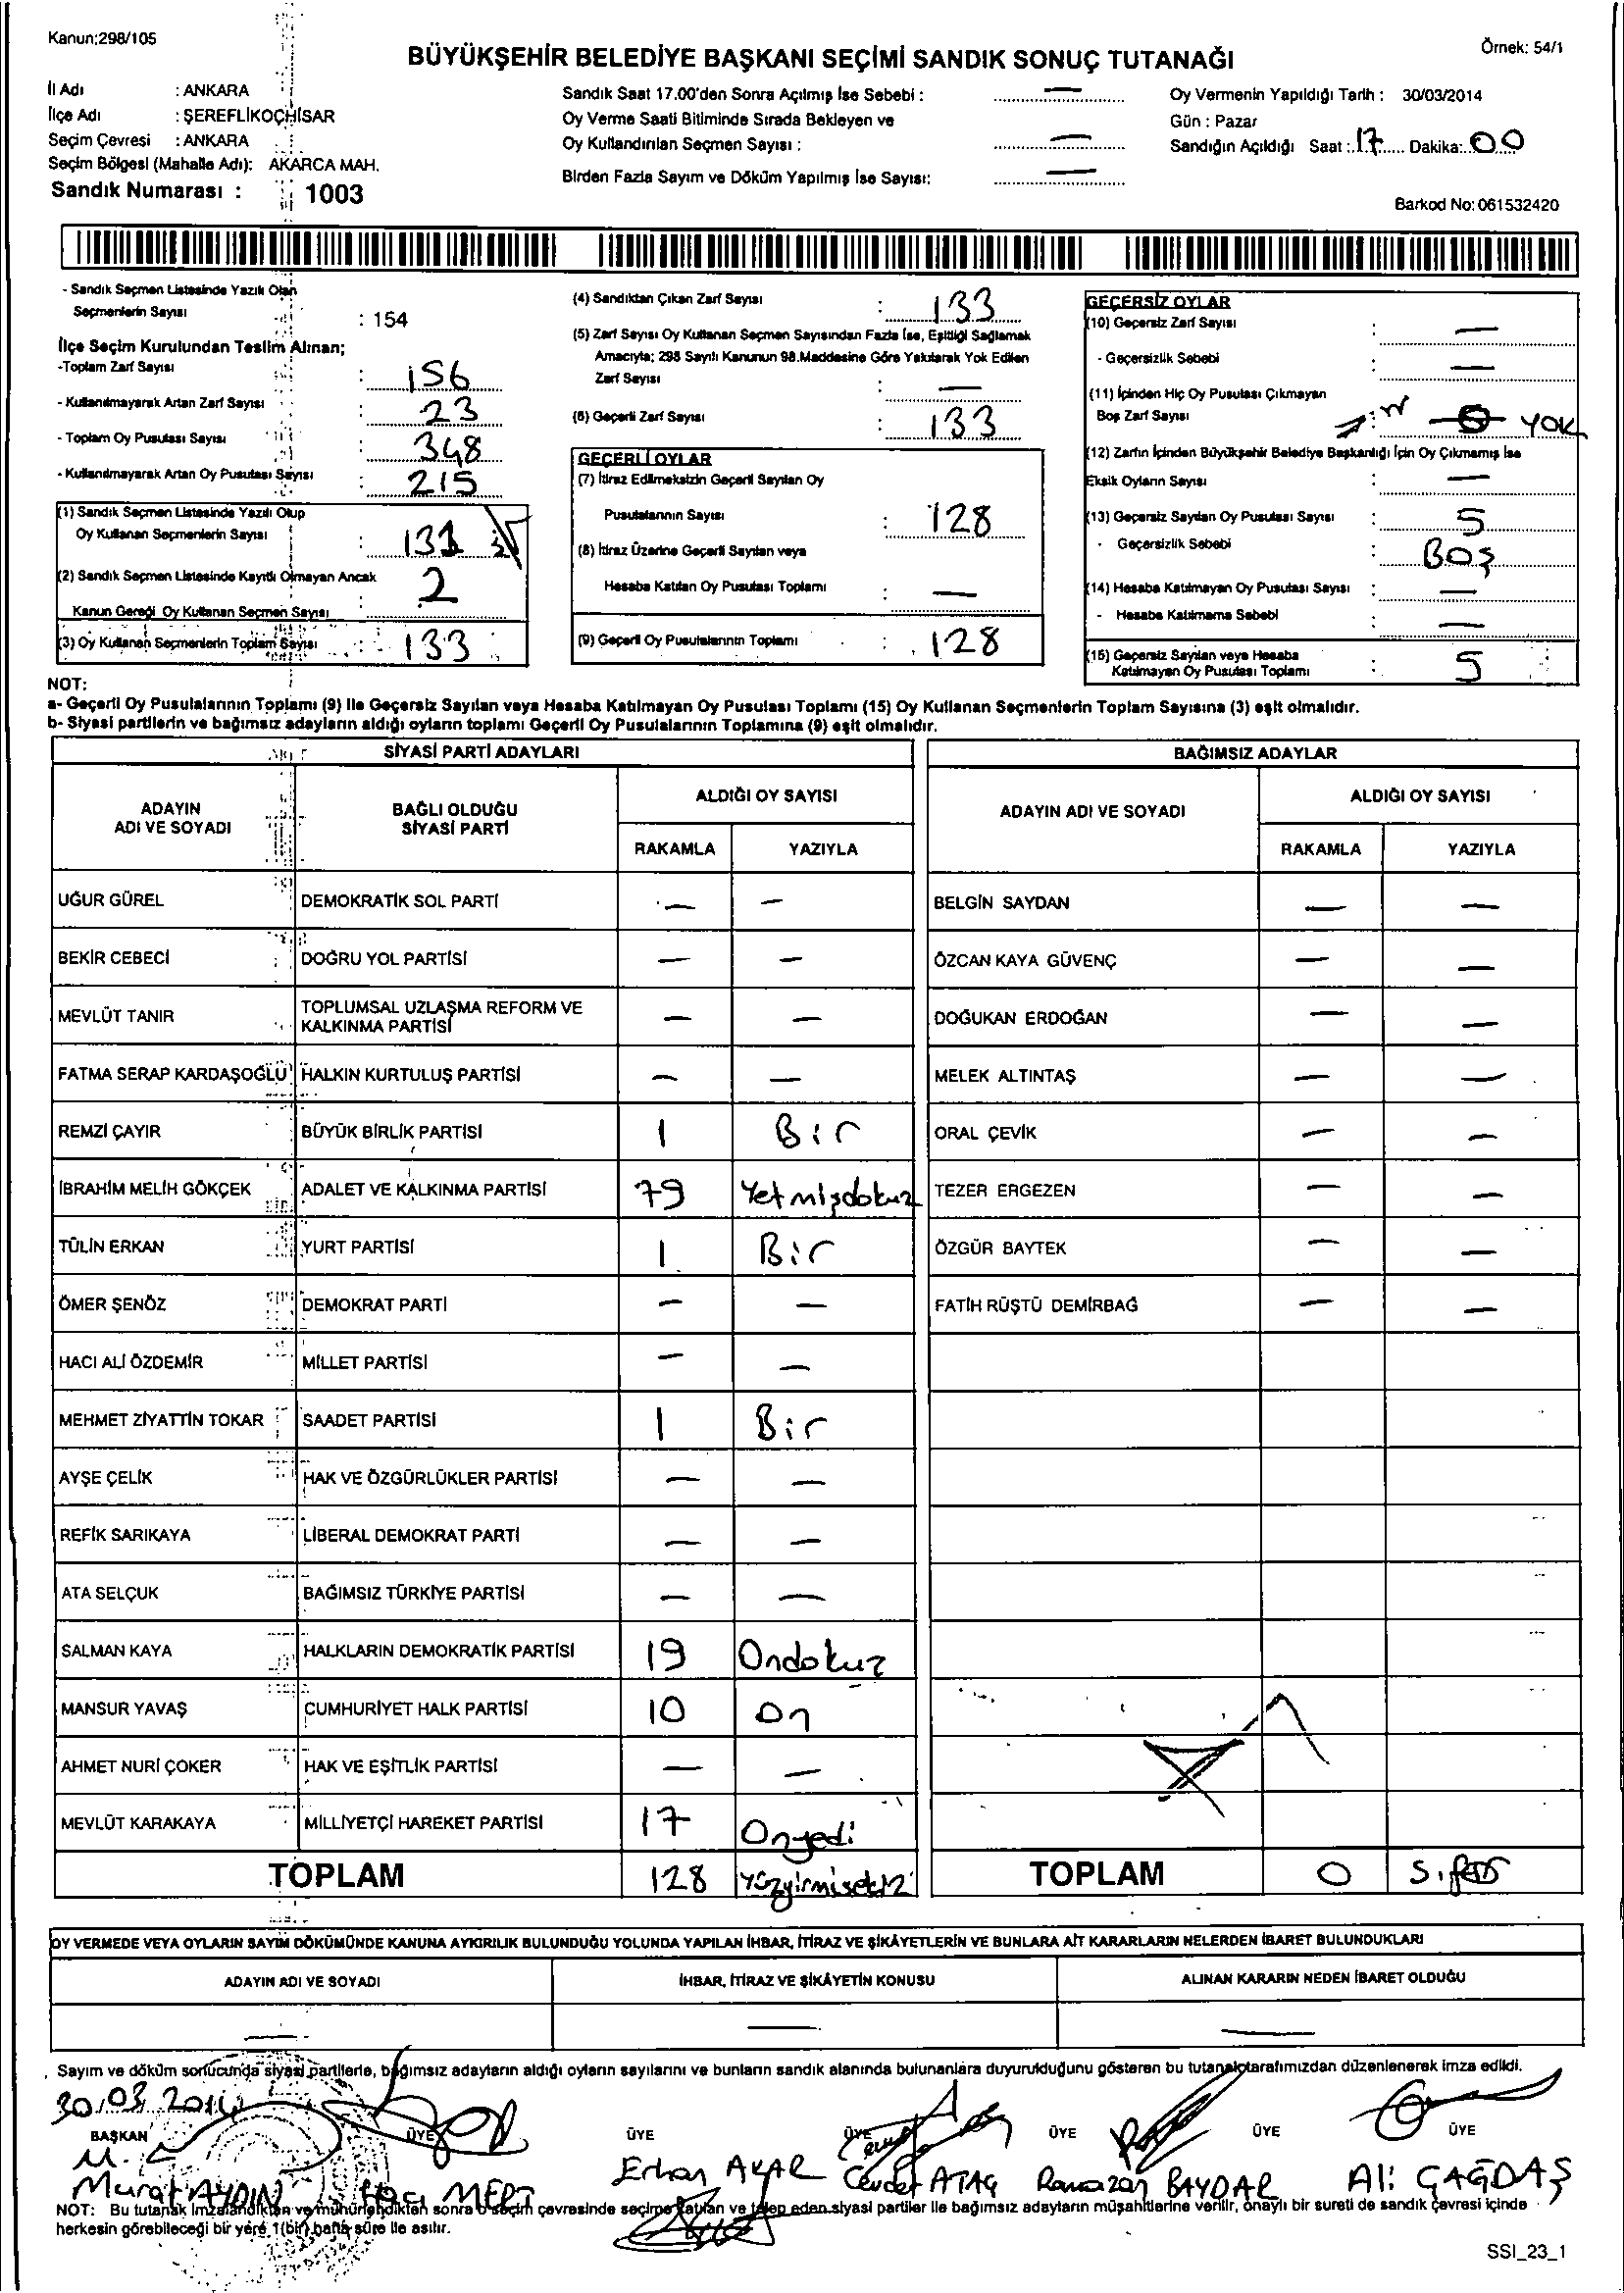 Kanun:298/105
Örnek: 54/1
BÜYÜKŞEHİR BELEDİYE BAŞKANI SEÇİMİ SANDIK SONUÇ TUTANAĞI
İl Adı : ANKARA
İlçe Adı : ŞEREFLİKOÇHİSAR
Seçim Çevresi : ANKARA
Seçim Bölgesi (Mahalle Adı): AKARCA MAH.
Sandık Numarası : 1003
Sandık Saat 17.00'den Sonra Açılmış İse Sebebi : —
Oy Verme Saati Bitiminde Sırada Bekleyen ve
Oy Kullandırılan Seçmen Sayısı : —
Birden Fazla Sayım ve Döküm Yapılmış İse Sayısı: —
Oy Vermenin Yapıldığı Tarih : 30/03/2014
Gün : Pazar
Sandığın Açıldığı Saat : 17 Dakika: 00
Barkod No: 061532420
- Sandık Seçmen Listesinde Yazılı Olan
Seçmenlerin Sayısı : 154
İlçe Seçim Kurulundan Teslim Alınan;
-Toplam Zarf Sayısı : 156
- Kullanılmayarak Artan Zarf Sayısı : 23
- Toplam Oy Pusulası Sayısı : 348
- Kullanılmayarak Artan Oy Pusulası Sayısı : 215
(1) Sandık Seçmen Listesinde Yazılı Olup
Oy Kullanan Seçmenlerin Sayısı : 131
(2) Sandık Seçmen Listesinde Kayıtlı Olmayan Ancak
Kanun Gereği Oy Kullanan Seçmen Sayısı : 2
(3) Oy Kullanan Seçmenlerin Toplam Sayısı : 133
(4) Sandıktan Çıkan Zarf Sayısı : 133
(5) Zarf Sayısı Oy Kullanan Seçmen Sayısından Fazla İse, Eşitliği Sağlamak
Amacıyla; 298 Sayılı Kanunun 98.Maddesine Göre Yakılarak Yok Edilen
Zarf Sayısı : —
(6) Geçerli Zarf Sayısı : 133
GEÇERLİ OYLAR
(7) İtiraz Edilmeksizin Geçerli Sayılan Oy
Pusulalarının Sayısı : 128
(8) İtiraz Üzerine Geçerli Sayılan veya
Hesaba Katılan Oy Pusulası Toplamı : —
(9) Geçerli Oy Pusulalarının Toplamı : 128
GEÇERSİZ OYLAR
(10) Geçersiz Zarf Sayısı : —
- Geçersizlik Sebebi : —
(11) İçinden Hiç Oy Pusulası Çıkmayan
Boş Zarf Sayısı : YOK
(12) Zarfın İçinden Büyükşehir Belediye Başkanlığı İçin Oy Çıkmamış İse
Eksik Oyların Sayısı : —
(13) Geçersiz Sayılan Oy Pusulası Sayısı : 5
- Geçersizlik Sebebi : BOŞ
(14) Hesaba Katılmayan Oy Pusulası Sayısı : —
- Hesaba Katılmama Sebebi : —
(15) Geçersiz Sayılan veya Hesaba
Katılmayan Oy Pusulası Toplamı : 5
NOT:
a- Geçerli Oy Pusulalarının Toplamı (9) ile Geçersiz Sayılan veya Hesaba Katılmayan Oy Pusulası Toplamı (15) Oy Kullanan Seçmenlerin Toplam Sayısına (3) eşit olmalıdır.
b- Siyasi partilerin ve bağımsız adayların aldığı oyların toplamı Geçerli Oy Pusulalarının Toplamına (9) eşit olmalıdır.
SİYASİ PARTİ ADAYLARI
ADAYIN ADI VE SOYADI BAĞLI OLDUĞU SİYASİ PARTİ ALDIĞI OY SAYISI
RAKAMLA YAZIYLA
UĞUR GÜREL DEMOKRATİK SOL PARTİ — —
BEKİR CEBECİ DOĞRU YOL PARTİSİ — —
MEVLÜT TANIR TOPLUMSAL UZLAŞMA REFORM VE KALKINMA PARTİSİ — —
FATMA SERAP KARDAŞOĞLU HALKIN KURTULUŞ PARTİSİ — —
REMZİ ÇAYIR BÜYÜK BİRLİK PARTİSİ 1 Bir
İBRAHİM MELİH GÖKÇEK ADALET VE KALKINMA PARTİSİ 79 Yetmişdokuz
TÜLİN ERKAN YURT PARTİSİ 1 Bir
ÖMER ŞENÖZ DEMOKRAT PARTİ — —
HACI ALİ ÖZDEMİR MİLLET PARTİSİ — —
MEHMET ZİYATTİN TOKAR SAADET PARTİSİ 1 Bir
AYŞE ÇELİK HAK VE ÖZGÜRLÜKLER PARTİSİ — —
REFİK SARIKAYA LİBERAL DEMOKRAT PARTİ — —
ATA SELÇUK BAĞIMSIZ TÜRKİYE PARTİSİ — —
SALMAN KAYA HALKLARIN DEMOKRATİK PARTİSİ 19 Ondokuz
MANSUR YAVAŞ CUMHURİYET HALK PARTİSİ 10 On
AHMET NURİ ÇOKER HAK VE EŞİTLİK PARTİSİ — —
MEVLÜT KARAKAYA MİLLİYETÇİ HAREKET PARTİSİ 17 Onyedi
TOPLAM 128 Yüzyirmisekiz
BAĞIMSIZ ADAYLAR
ADAYIN ADI VE SOYADI ALDIĞI OY SAYISI
RAKAMLA YAZIYLA
BELGİN SAYDAN — —
ÖZCAN KAYA GÜVENÇ — —
DOĞUKAN ERDOĞAN — —
MELEK ALTINTAŞ — —
ORAL ÇEVİK — —
TEZER ERGEZEN — —
ÖZGÜR BAYTEK — —
FATİH RÜŞTÜ DEMİRBAĞ — —
TOPLAM 0 Sıfır
OY VERMEDE VEYA OYLARIN SAYIM DÖKÜMÜNDE KANUNA AYKIRILIK BULUNDUĞU YOLUNDA YAPILAN İHBAR, İTİRAZ VE ŞİKÂYETLERİN VE BUNLARA AİT KARARLARIN NELERDEN İBARET BULUNDUKLARI
ADAYIN ADI VE SOYADI İHBAR, İTİRAZ VE ŞİKÂYETİN KONUSU ALINAN KARARIN NEDEN İBARET OLDUĞU
— — —
Sayım ve döküm sonucunda siyasi partilerle, bağımsız adayların aldığı oyların sayılarını ve bunların sandık alanında bulunanlara duyurulduğunu gösteren bu tutanak tarafımızdan düzenlenerek imza edildi.
30.03.2014
BAŞKAN ÜYE ÜYE ÜYE ÜYE ÜYE ÜYE
Murat AYDIN Hacı MERT Erhan AKAR Cevdet ATAÇ Ramazan BAYDAR Ali ÇAĞDAŞ
NOT: Bu tutanak imzalandıktan ve mühürlendikten sonra o seçim çevresinde seçime katılan ve talep eden siyasi partiler ile bağımsız adayların müşahitlerine verilir, onaylı bir sureti de sandık çevresi içinde
herkesin görebileceği bir yere 1(bir) hafta süre ile asılır.
SSI_23_1